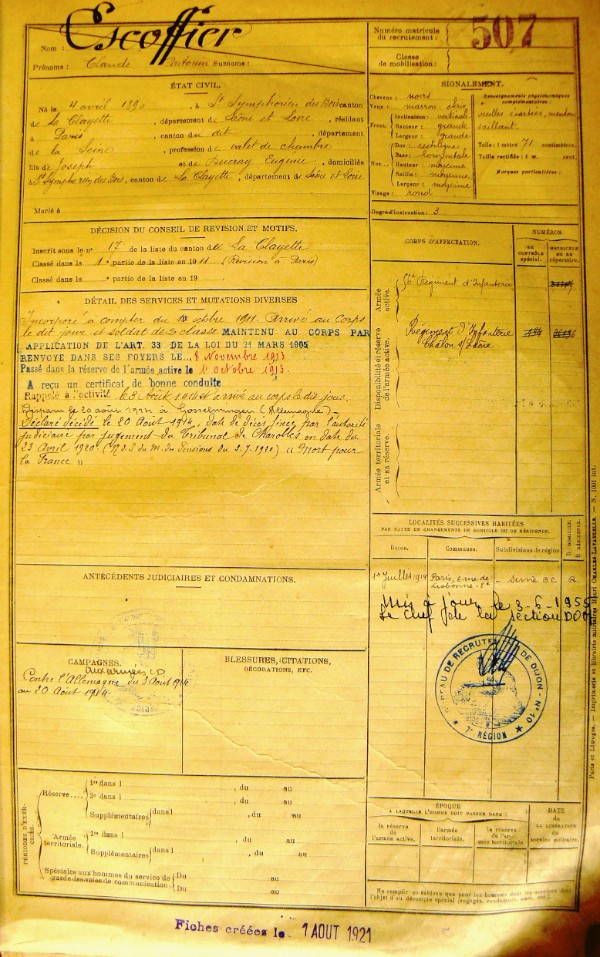 Nom : Escoffier
Prénoms : Claude Antonin Surnoms :
Numéro matricule
du recrutement : 507
Classe
de mobilisation :
ÉTAT CIVIL.
Né le 4 avril 1890, à St Symphorien des Bois canton
de La Clayette, département de Saône et Loire, résidant
à Paris, canton du dit, département
de la Seine, profession de valet de chambre
fils de Joseph et de Ducray Eugénie, domiciliés
à St Symphorien des Bois, canton de La Clayette, département de Saône et Loire
Marié à
SIGNALEMENT.
Cheveux : noirs
Yeux : marron
Front. Inclinaison : verticale
Hauteur : grande
Largeur : grande
Nez. Dos : rectiligne
Base : horizontale
Hauteur : moyenne
Saillie : moyenne
Largeur : moyenne
Visage : rond
Renseignements physionomiques
complémentaires :
oreilles écartées, menton
saillant.
Taille : 1 mètre 71 centimètres.
Taille rectifiée : 1 m. cent.
Marques particulières :
Degré d'instruction : 3
DÉCISION DU CONSEIL DE REVISION ET MOTIFS.
Inscrit sous le n° 17 de la liste du canton de La Clayette
Classé dans la 1e partie de la liste en 1911 (Révision à Paris)
Classé dans la partie de la liste en 19
DÉTAIL DES SERVICES ET MUTATIONS DIVERSES
Incorporé à compter du octobre 1911. Arrivé au Corps
le dit jour et soldat de 2e classe MAINTENU AU CORPS PAR
APPLICATION DE L'ART. 33 DE LA LOI DU 21 MARS 1905
RENVOYÉ DANS SES FOYERS LE 8 Novembre 1913
Passé dans la réserve de l'armée active le 1er Octobre 1913.
A reçu un certificat de bonne conduite
Rappelé à l'activité le 3 Août 1914 et arrivé au corps le dit jour.
Disparu le 20 août 1914 à Gosselmingen (Allemagne)
Déclaré décédé le 20 Août 1914, date de décès fixée par l'autorité
judiciaire par jugement du Tribunal de Charolles en date du
23 Avril 1920 du M. des Pensions du 5.7.1921) "Mort pour
la France"
CORPS D'AFFECTATION.
NUMÉROS
AU CONTROLE SPÉCIAL.
MATRICULE OU AU RÉPERTOIRE.
Armée active.
56e Régiment d'Infanterie
Disponibilité et réserve de l'armée active.
Régiment d'Infanterie
Chalon s/Saône
Armée territoriale et sa réserve.
LOCALITÉS SUCCESSIVES HABITÉES
PAR SUITE DE CHANGEMENTS DE DOMICILE OU DE RÉSIDENCE.
Dates. Communes. Subdivisions de région D. domicile. R. résidence.
1er Juillet 1914 Paris, 6 rue de Lisbonne - 8e Seine B.C. R.
Mis à jour le 3-6-1955
Le Chef de la section
BUREAU DE RECRUTEMENT DE DIJON - N° 10
7e RÉGION
ANTÉCÉDENTS JUDICIAIRES ET CONDAMNATIONS.
CAMPAGNES.
aux armées CD
Contre l'Allemagne du 3 Août 1914
au 20 Août 1914
BLESSURES, CITATIONS,
DÉCORATIONS, ETC.
PÉRIODES D'EXERCICES.
Réserve 1re dans l , du au
2e dans l , du au
Supplémentaires dans l , du au
, du au
Armée territoriale. 1re dans l , du au
Supplémentaires dans l , du au
, du au
Spéciales aux hommes du service de
garde des voies de communication. Du au
Du au
ÉPOQUE
À LAQUELLE L'HOMME DOIT PASSER DANS :
la réserve de l'armée active.
l'armée territoriale.
la réserve de l'armée territoriale.
DATE
DE LA LIBÉRATION
du service militaire.
Paris et Limoges. — Imprimerie et librairie militaires Henri CHARLES-LAVAUZELLE.
Fiches créées le 1 AOUT 1921